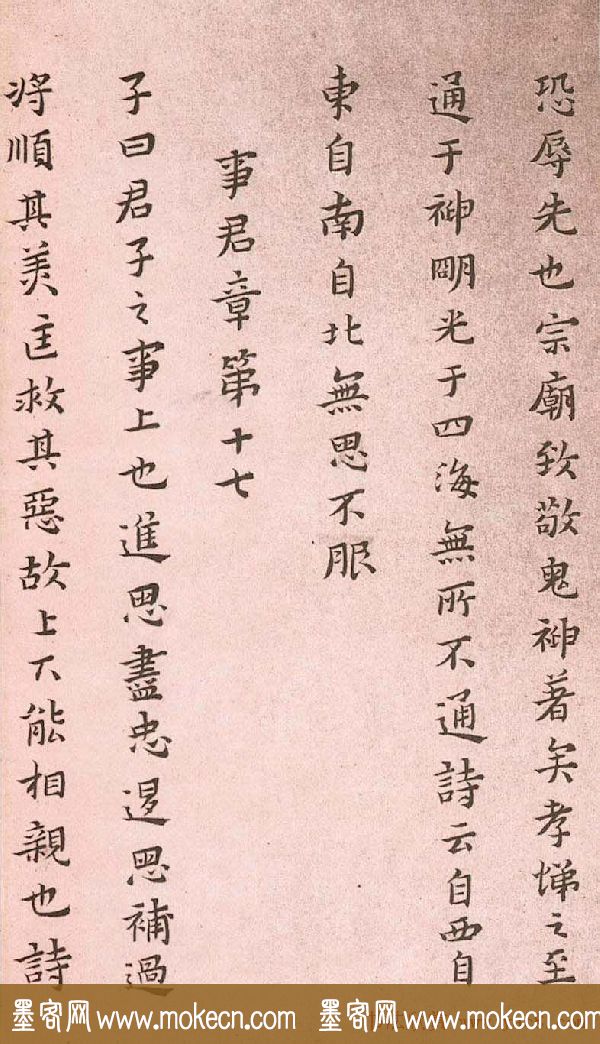 恐辱先也宗廟致敬鬼神著矣孝悌之至
通于神明光于四海無所不通詩云自西自
東自南自北無思不服
事君章第十七
子曰君子之事上也進思盡忠退思補過
將順其美匡救其惡故上下能相親也詩
墨客网 www.mokecn.com 墨客网 www.mokecn.com